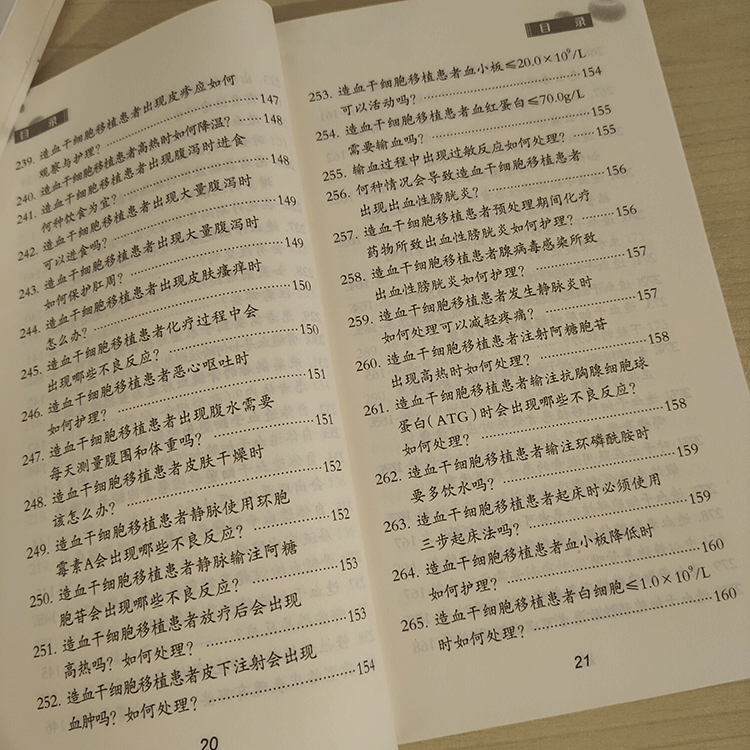 目 录
239. 造血干细胞移植患者出现皮疹应如何
观察与护理? 147
240. 造血干细胞移植患者高热时如何降温? 148
241. 造血干细胞移植患者出现腹泻时进食
何种饮食为宜? 148
242. 造血干细胞移植患者出现大量腹泻时
可以进食吗? 149
243. 造血干细胞移植患者出现大量腹泻时
如何保护肛周? 149
244. 造血干细胞移植患者出现皮肤瘙痒时
怎么办? 150
245. 造血干细胞移植患者化疗过程中会
出现哪些不良反应? 150
246. 造血干细胞移植患者恶心呕吐时
如何护理? 151
247. 造血干细胞移植患者出现腹水需要
每天测量腹围和体重吗? 151
248. 造血干细胞移植患者皮肤干燥时
该怎么办? 152
249. 造血干细胞移植患者静脉使用环胞
霉素A会出现哪些不良反应? 152
250. 造血干细胞移植患者静脉输注阿糖
胞苷会出现哪些不良反应? 153
251. 造血干细胞移植患者放疗后会出现
高热吗? 如何处理? 153
252. 造血干细胞移植患者皮下注射会出现
血肿吗? 如何处理? 154
20
目 录
253. 造血干细胞移植患者血小板≤20.0×10⁹/L
可以活动吗? 154
254. 造血干细胞移植患者血红蛋白≤70.0g/L
需要输血吗? 155
255. 输血过程中出现过敏反应如何处理? 155
256. 何种情况会导致造血干细胞移植患者
出现出血性膀胱炎? 156
257. 造血干细胞移植患者预处理期间化疗
药物所致出血性膀胱炎如何护理? 156
258. 造血干细胞移植患者腺病毒感染所致
出血性膀胱炎如何护理? 157
259. 造血干细胞移植患者发生静脉炎时
如何处理可以减轻疼痛? 157
260. 造血干细胞移植患者注射阿糖胞苷
出现高热时如何处理? 158
261. 造血干细胞移植患者输注抗胸腺细胞球
蛋白(ATG)时会出现哪些不良反应?
如何处理? 158
262. 造血干细胞移植患者输注环磷酰胺时
要多饮水吗? 159
263. 造血干细胞移植患者起床时必须使用
三步起床法吗? 159
264. 造血干细胞移植患者血小板降低时
如何护理? 160
265. 造血干细胞移植患者白细胞≤1.0×10⁹/L
时如何处理? 160
21